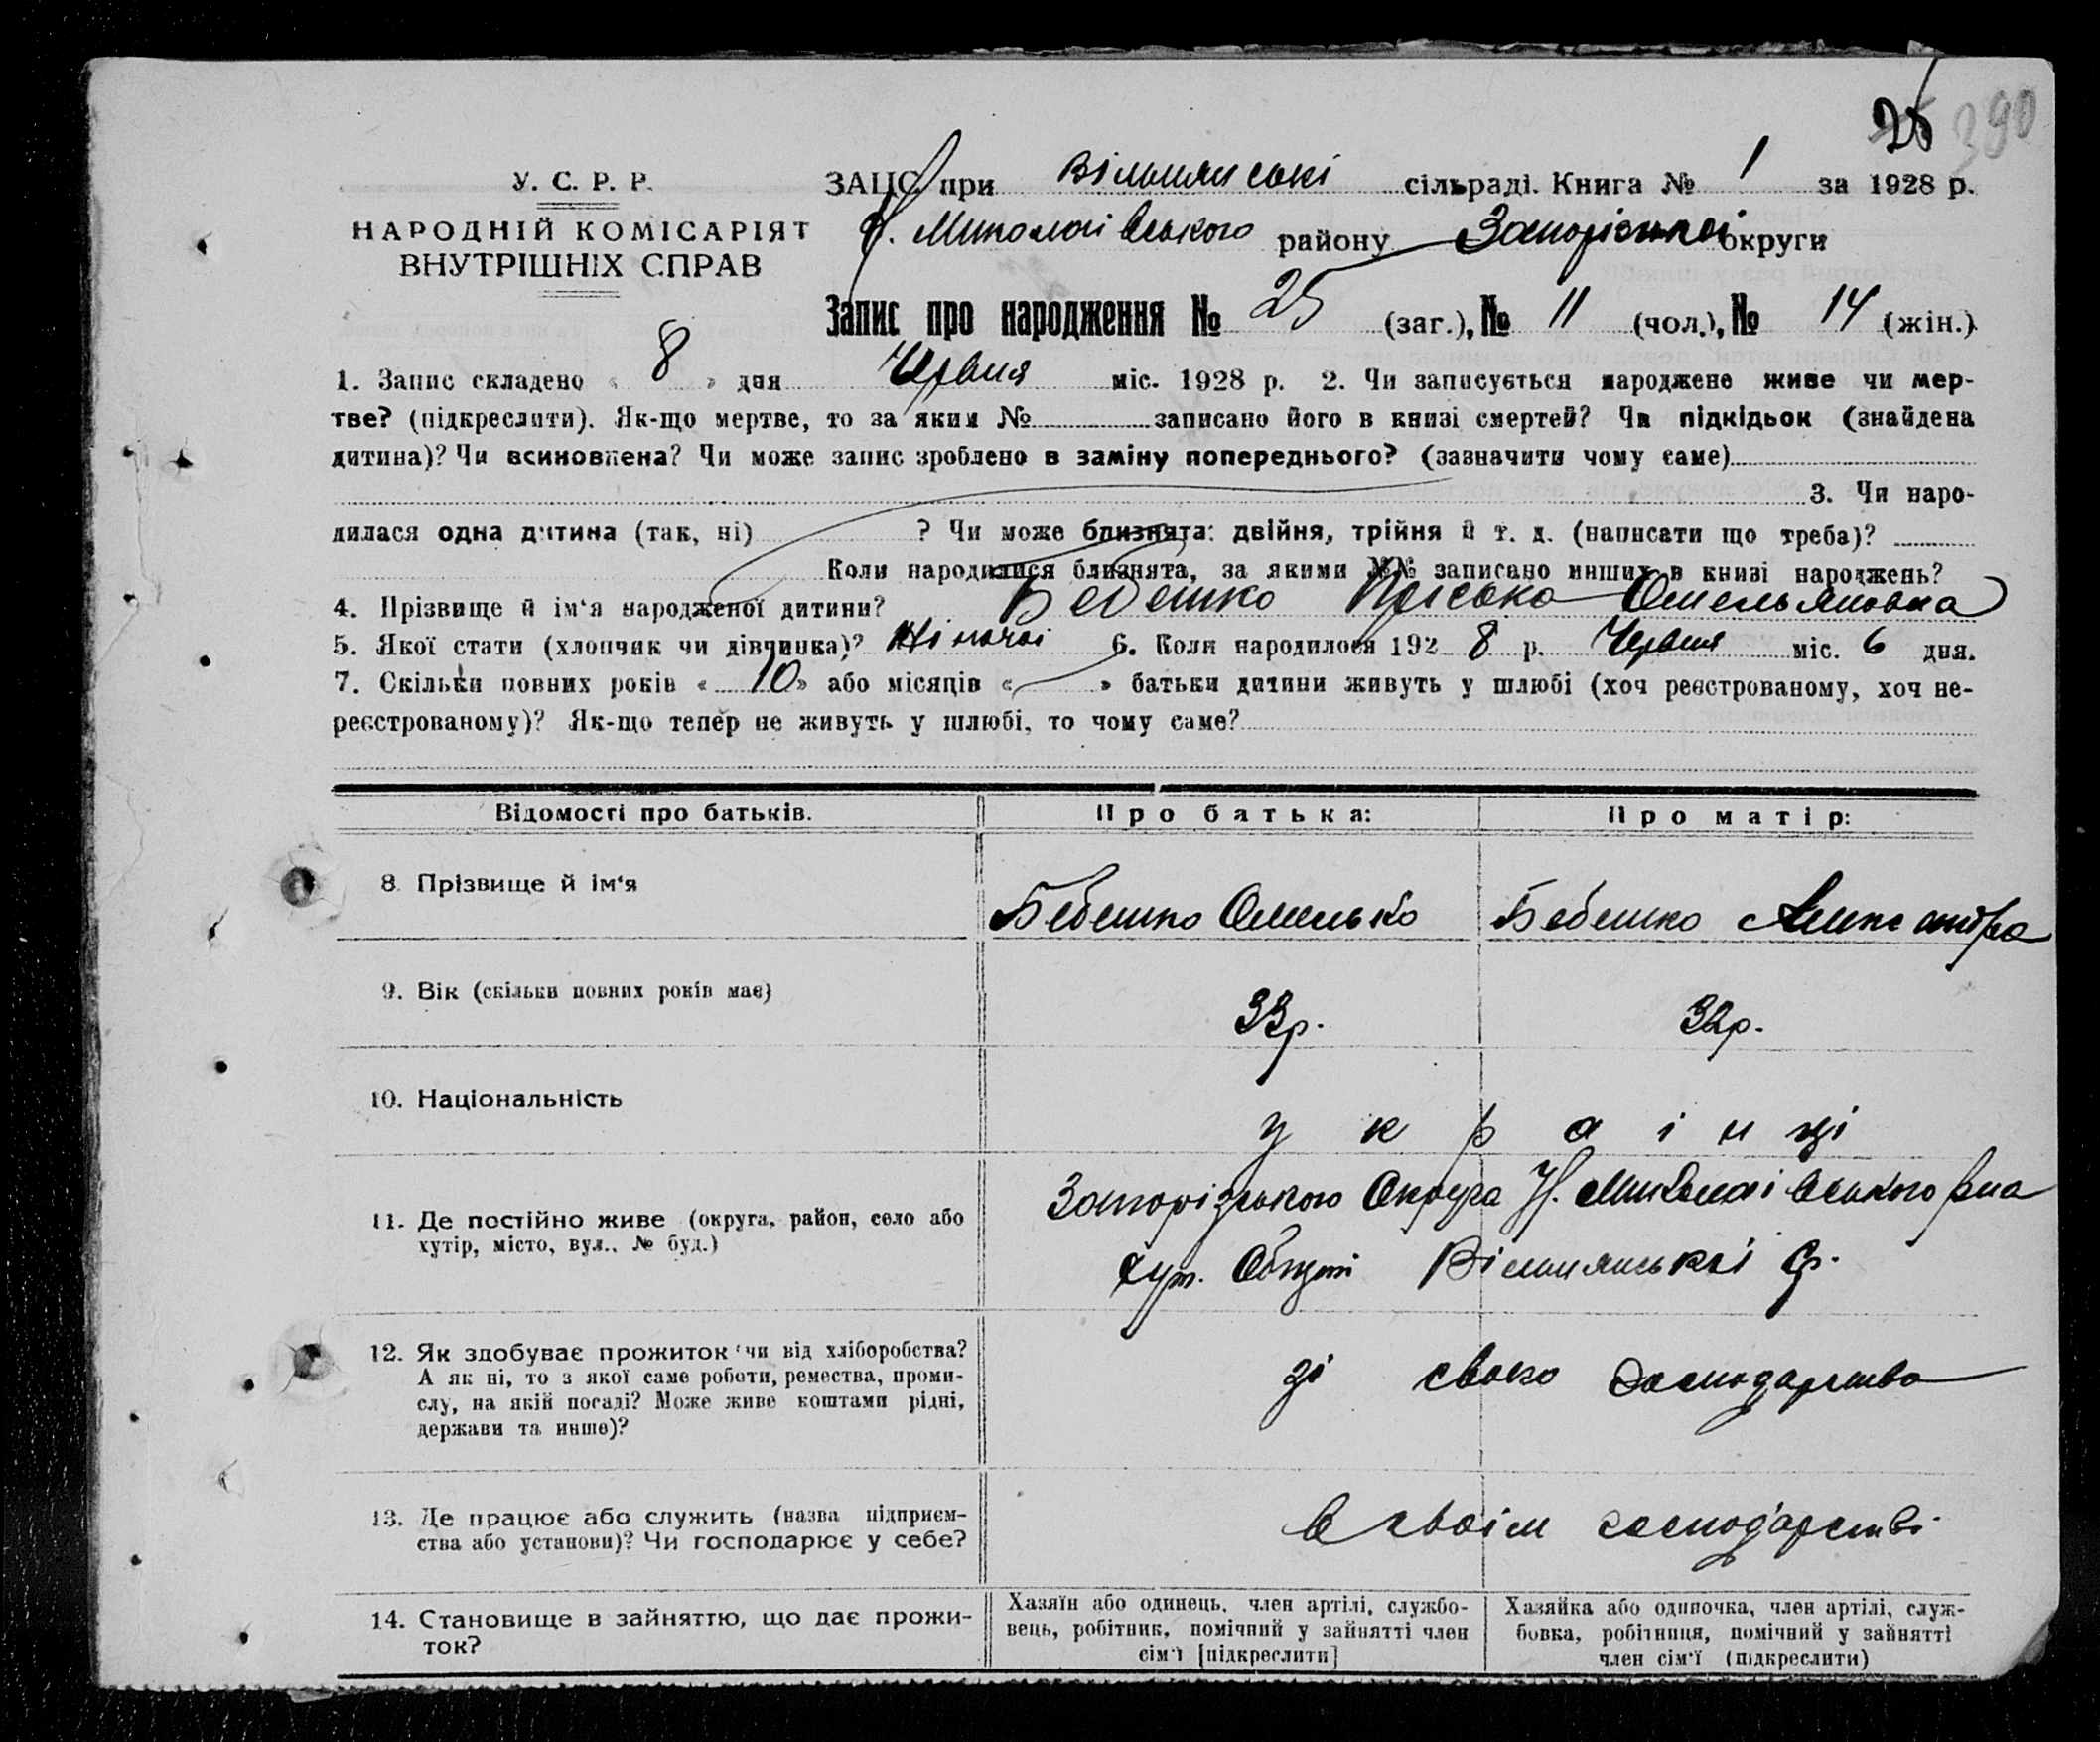 25 390
У. С. Р. Р.
НАРОДНІЙ КОМІСАРІЯТ
ВНУТРІШНІХ СПРАВ
ЗАЦС при Вільшанські сільраді. Книга № 1 за 1928 р.
Н. Миколаівського району Запорізькоі округи
Запис про народження № 25 (заг.), № 11 (чол.), № 14 (жін.)
1. Запис складено « 8 » дня Червня міс. 1928 р. 2. Чи записується народжене живе чи мер-
тве? (підкреслити). Як-що мертве, то за яким № записано його в книзі смертей? Чи підкідьок (знайдена
дитина)? Чи всиновлена? Чи може запис зроблено в заміну попереднього? (зазначити чому саме)
3. Чи наро-
дилася одна дитина (так, ні) ? Чи може близнята: двійня, трійня й т. д. (написати що треба)?
Коли народилися близнята, за якими №№ записано инших в книзі народжень?
4. Прізвище й ім‘я народженої дитини? Бебешко Пріська Омельяновна
5. Якої стати (хлопчик чи дівчинка)? Жіночоі 6. Коли народилося 192 8 р. Червня міс. 6 дня.
7. Скільки повних років « 10 » або місяців « » батьки дитини живуть у шлюбі (хоч реєстрованому, хоч не-
реєстрованому)? Як-що тепер не живуть у шлюбі, то чому саме?
Відомості про батьків. Про батька: Про матір:
8 Прізвище й ім‘я Бебешко Омелько Бебешко Александра
9. Вік (скільки повних років має) 33р. 32р.
10. Національність украінці
11. Де постійно живе (округа, район, село або
хутір, місто, вул., № буд.)
Запорізького Округа Н. Миколаівського Рна
хут. Вільшанськоі с/р.
12. Як здобуває прожиток чи від хліборобства?
А як ні, то з якої саме роботи, ремества, проми-
слу, на якій посаді? Може живе коштами рідні,
держави та инше)?
зі свого господарства
13. Де працює або служить (назва підприєм-
ства або установи)? Чи господарює у себе?
В своім господарстві
14. Становище в зайняттю, що дає прожи-
ток?
Хазяїн або одинець, член артілі, службо-
вець, робітник, помічний у зайнятті член
сім‘ї [підкреслити]
Хазяйка або одиночка, член артілі, служ-
бовка, робітниця, помічний у зайнятті
член сім‘ї (підкреслити)